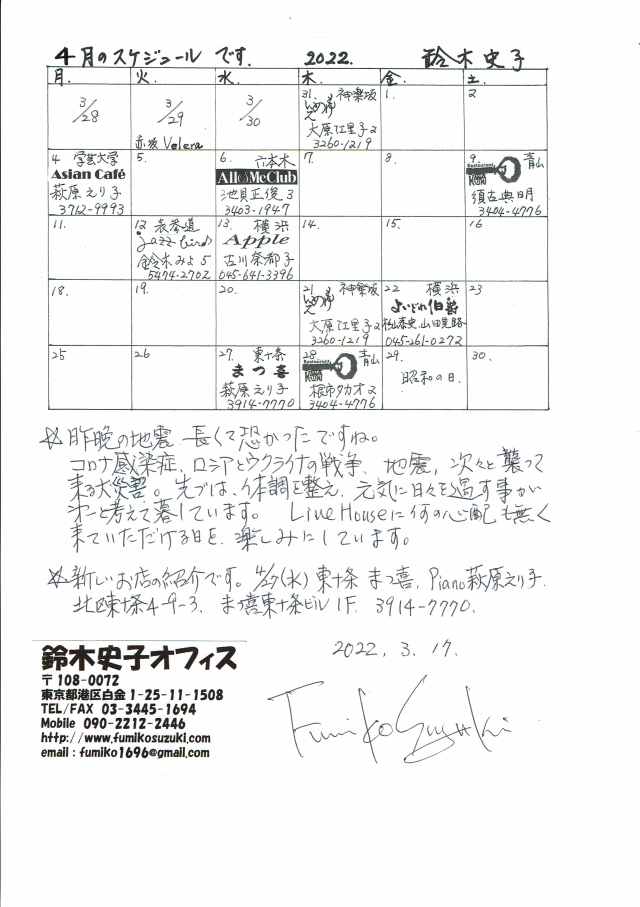 4月のスケジュール です. 2022. 鈴木史子
月. 火. 水. 木. 金. 土.
3/28 3/29 3/30 31. 神楽坂 1. 2
大原江里子2
赤坂 Velera 3260-1219
4. 学芸大学 5. 6. 六本木 7. 8. 9. 青山
Asian Café All of Me Club Restaurant
萩原えり子 池貝正俊3 須古典明
3712-9993 3403-1947 3404-4776
11. 12. 表参道 13. 横浜 14. 15. 16
jazz bird Apple
鈴木みよ5 古川奈都子
5474-2702 045-641-3396
18. 19. 20. 21. 神楽坂 22 横浜 23
よいどれ伯爵
大原江里子2 杉山泰史,
3260-1219 045-261-0272
25 26 27. 東十条 28 青山 29. 30.
まつ喜 Restaurant 昭和の日.
萩原えり子 根市タカオ2
3914-7770 3404-4776
☆昨晩の地震 長くて恐かったですね。
コロナ感染症、ロシアとウクライナの戦争、地震, 次々と襲って
来る大災害。先づは、体調を整え、元気に日々を過す事が
才一と考えて暮しています。 Live Houseに何の心配も無く
来ていただける日を、楽しみにしています。
☆新しいお店の紹介です。4/27(水) 東十条 まつ喜. Piano萩原えり子.
北区東十条4-9-3. まつ喜東十条ビル1F. 3914-7770.
2022. 3. 17.
鈴木史子オフィス
〒108-0072
東京都港区白金1-25-11-1508
TEL/FAX 03-3445-1694
Mobile 090-2212-2446
http://www.fumikosuzuki.com
email : fumiko1696@gmail.com
Fumiko Suzuki